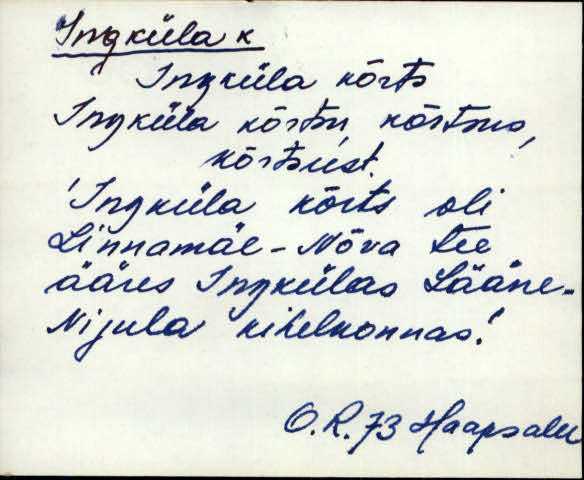 Ingküla k
Ingküla kõrts
Ingküla kõrtsi, kõrtsus,
kõrtsist.
'Ingküla kõrts oli
Linnamäe-Nõva tee
ääres Ingkülas Lääne-
Nigula kihelkonnas.'
O.R. 73 Haapsalu